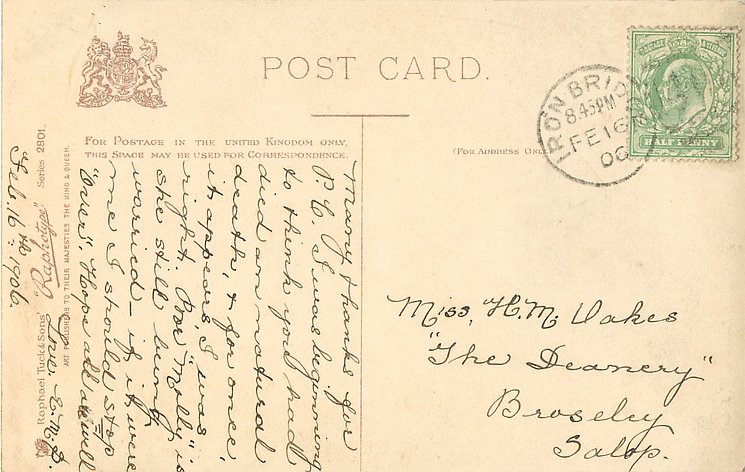 POST CARD.
FOR POSTAGE IN THE UNITED KINGDOM ONLY,
THIS SPACE MAY BE USED FOR CORRESPONDENCE.
(FOR ADDRESS ONLY
IRON BRIDGE
8.45PM
FE 16
06
HALF PENNY
Many thanks for
P.C. I was beginning
to think you had
died an natural
death, & for once,
it appears, I was
right. Poor "Molly" is
she still being
worried – if it were
me I should stop
"over". Hope all are well
Love E.M.D.
Feb. 16th 1906.
Raphael Tuck & Sons' "Raphotype" Series 2801.
ART PUBLISHERS TO THEIR MAJESTIES THE KING & QUEEN.
Miss, H. M. Oakes
"The Deanery"
Broseley
Salop.